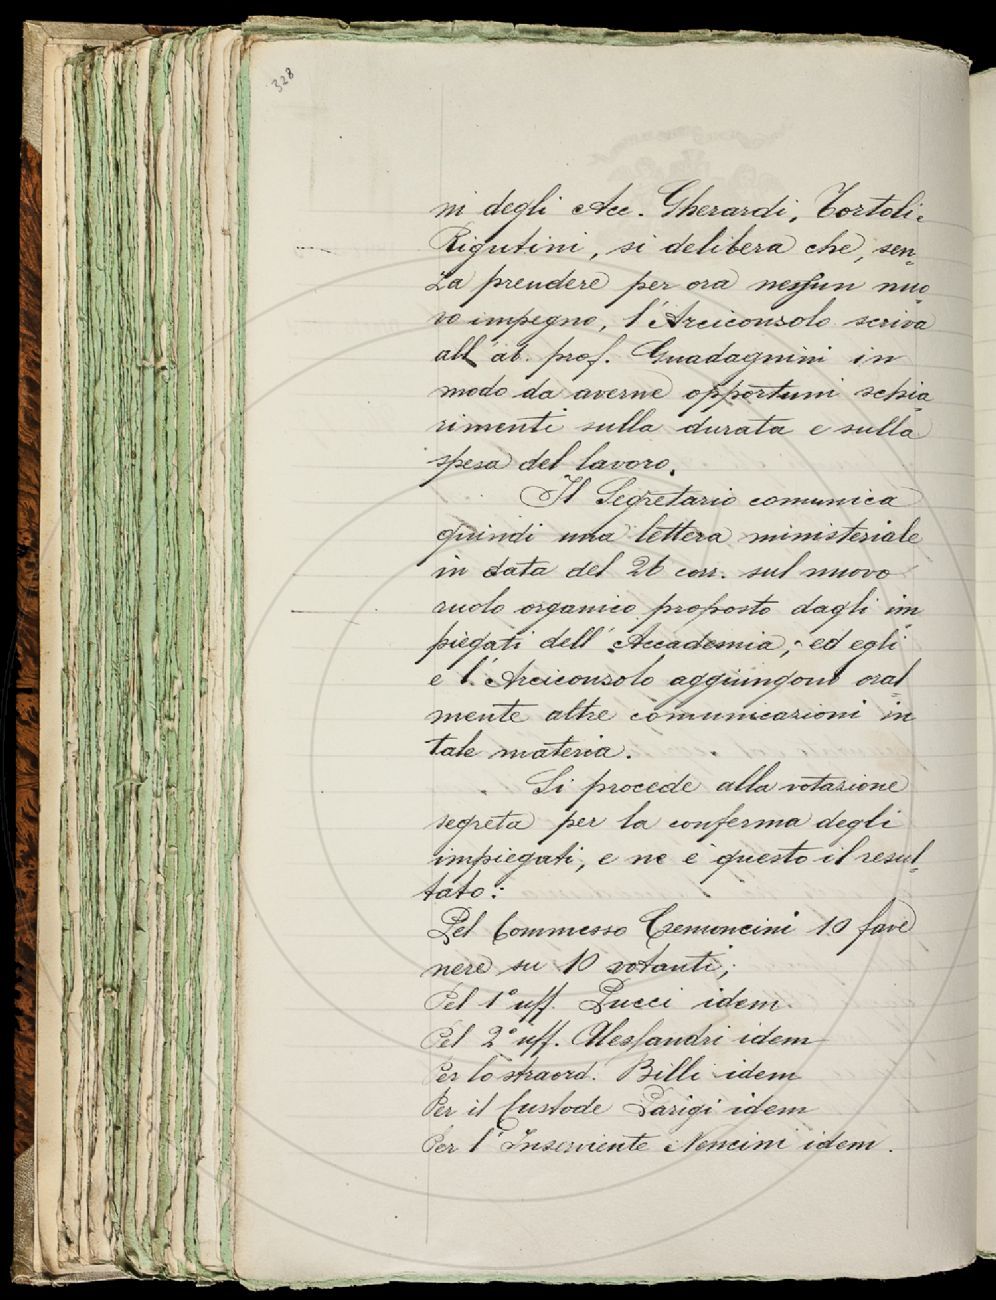 328
ni degli Acc. Gherardi, Tortoli,
Rigutini, si delibera che, sen=
za prendere per ora nessun nuo
vo impegno, l'Arciconsolo scriva
all'ab. prof. Guadagnini in
modo da averne opportuni schia
rimenti sulla durata e sulla
spesa del lavoro.
Il Segretario comunica
quindi una lettera ministeriale
in data del 26 corr. sul nuovo
ruolo organico proposto dagli im
piegati dell'Accademia; ed egli
e l'Arciconsolo aggiungono oral=
mente altre comunicazioni in
tale materia.
Si procede alla votazione
segreta per la conferma degli
impiegati, e ne è questo il resul=
tato:
Pel Commesso Cremoncini 10 fave
nere su 10 votanti;
Pel 1° uff. Pucci idem
Pel 2° uff. Alessandri idem
Per lo straord. Billi idem
Per il Custode Parigi idem
Per l'Inserviente Nencini idem.